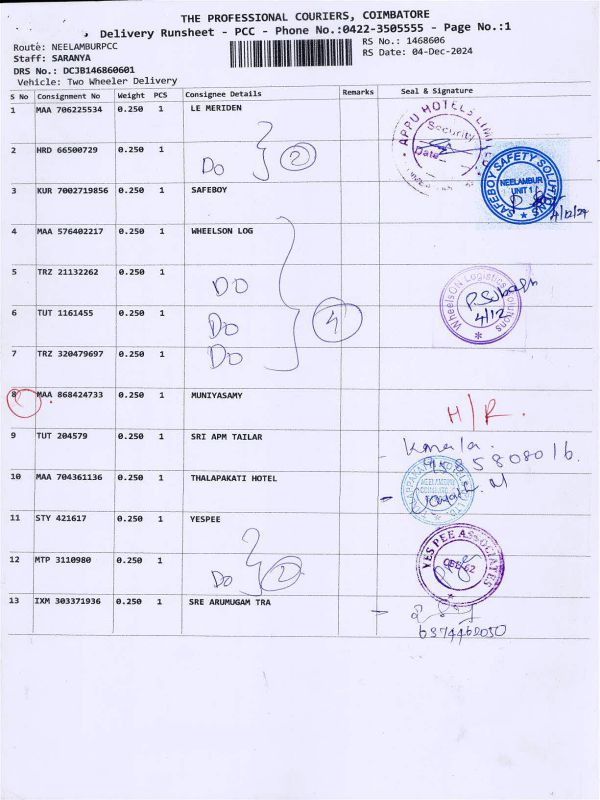 THE PROFESSIONAL COURIERS, COIMBATORE
Delivery Runsheet - PCC - Phone No.:0422-3505555 - Page No.:1
Route: NEELAMBURPCC
RS No.: 1468606
Staff: SARANYA
RS Date: 04-Dec-2024
DRS No.: DCJB146860601
Vehicle: Two Wheeler Delivery
S No Consignment No Weight PCS Consignee Details Remarks Seal & Signature
1 MAA 706225534 0.250 1 LE MERIDEN
APPU HOTELS LIMITED
Security
Date
2 HRD 66500729 0.250 1 Do 2
3 KUR 7002719856 0.250 1 SAFEBOY
SAFEBOY SAFETY SOLUTIONS
NEELAMBUR
UNIT 1
4/12/24
4 MAA 576402217 0.250 1 WHEELSON LOG
5 TRZ 21132262 0.250 1 DO
WheelsON Logistics Solutions
P. Subash
4/12
6 TUT 1161455 0.250 1 Do 4
7 TRZ 320479697 0.250 1 Do
8 MAA 868424733 0.250 1 MUNIYASAMY H/R.
9 TUT 204579 0.250 1 SRI APM TAILAR
10 MAA 704361136 0.250 1 THALAPAKATI HOTEL
NEELAMBUR
11 STY 421617 0.250 1 YESPEE
YES PEE ASSOCIATES
12 MTP 3110980 0.250 1 Do 2
13 IXM 303371936 0.250 1 SRE ARUMUGAM TRA
6374460050